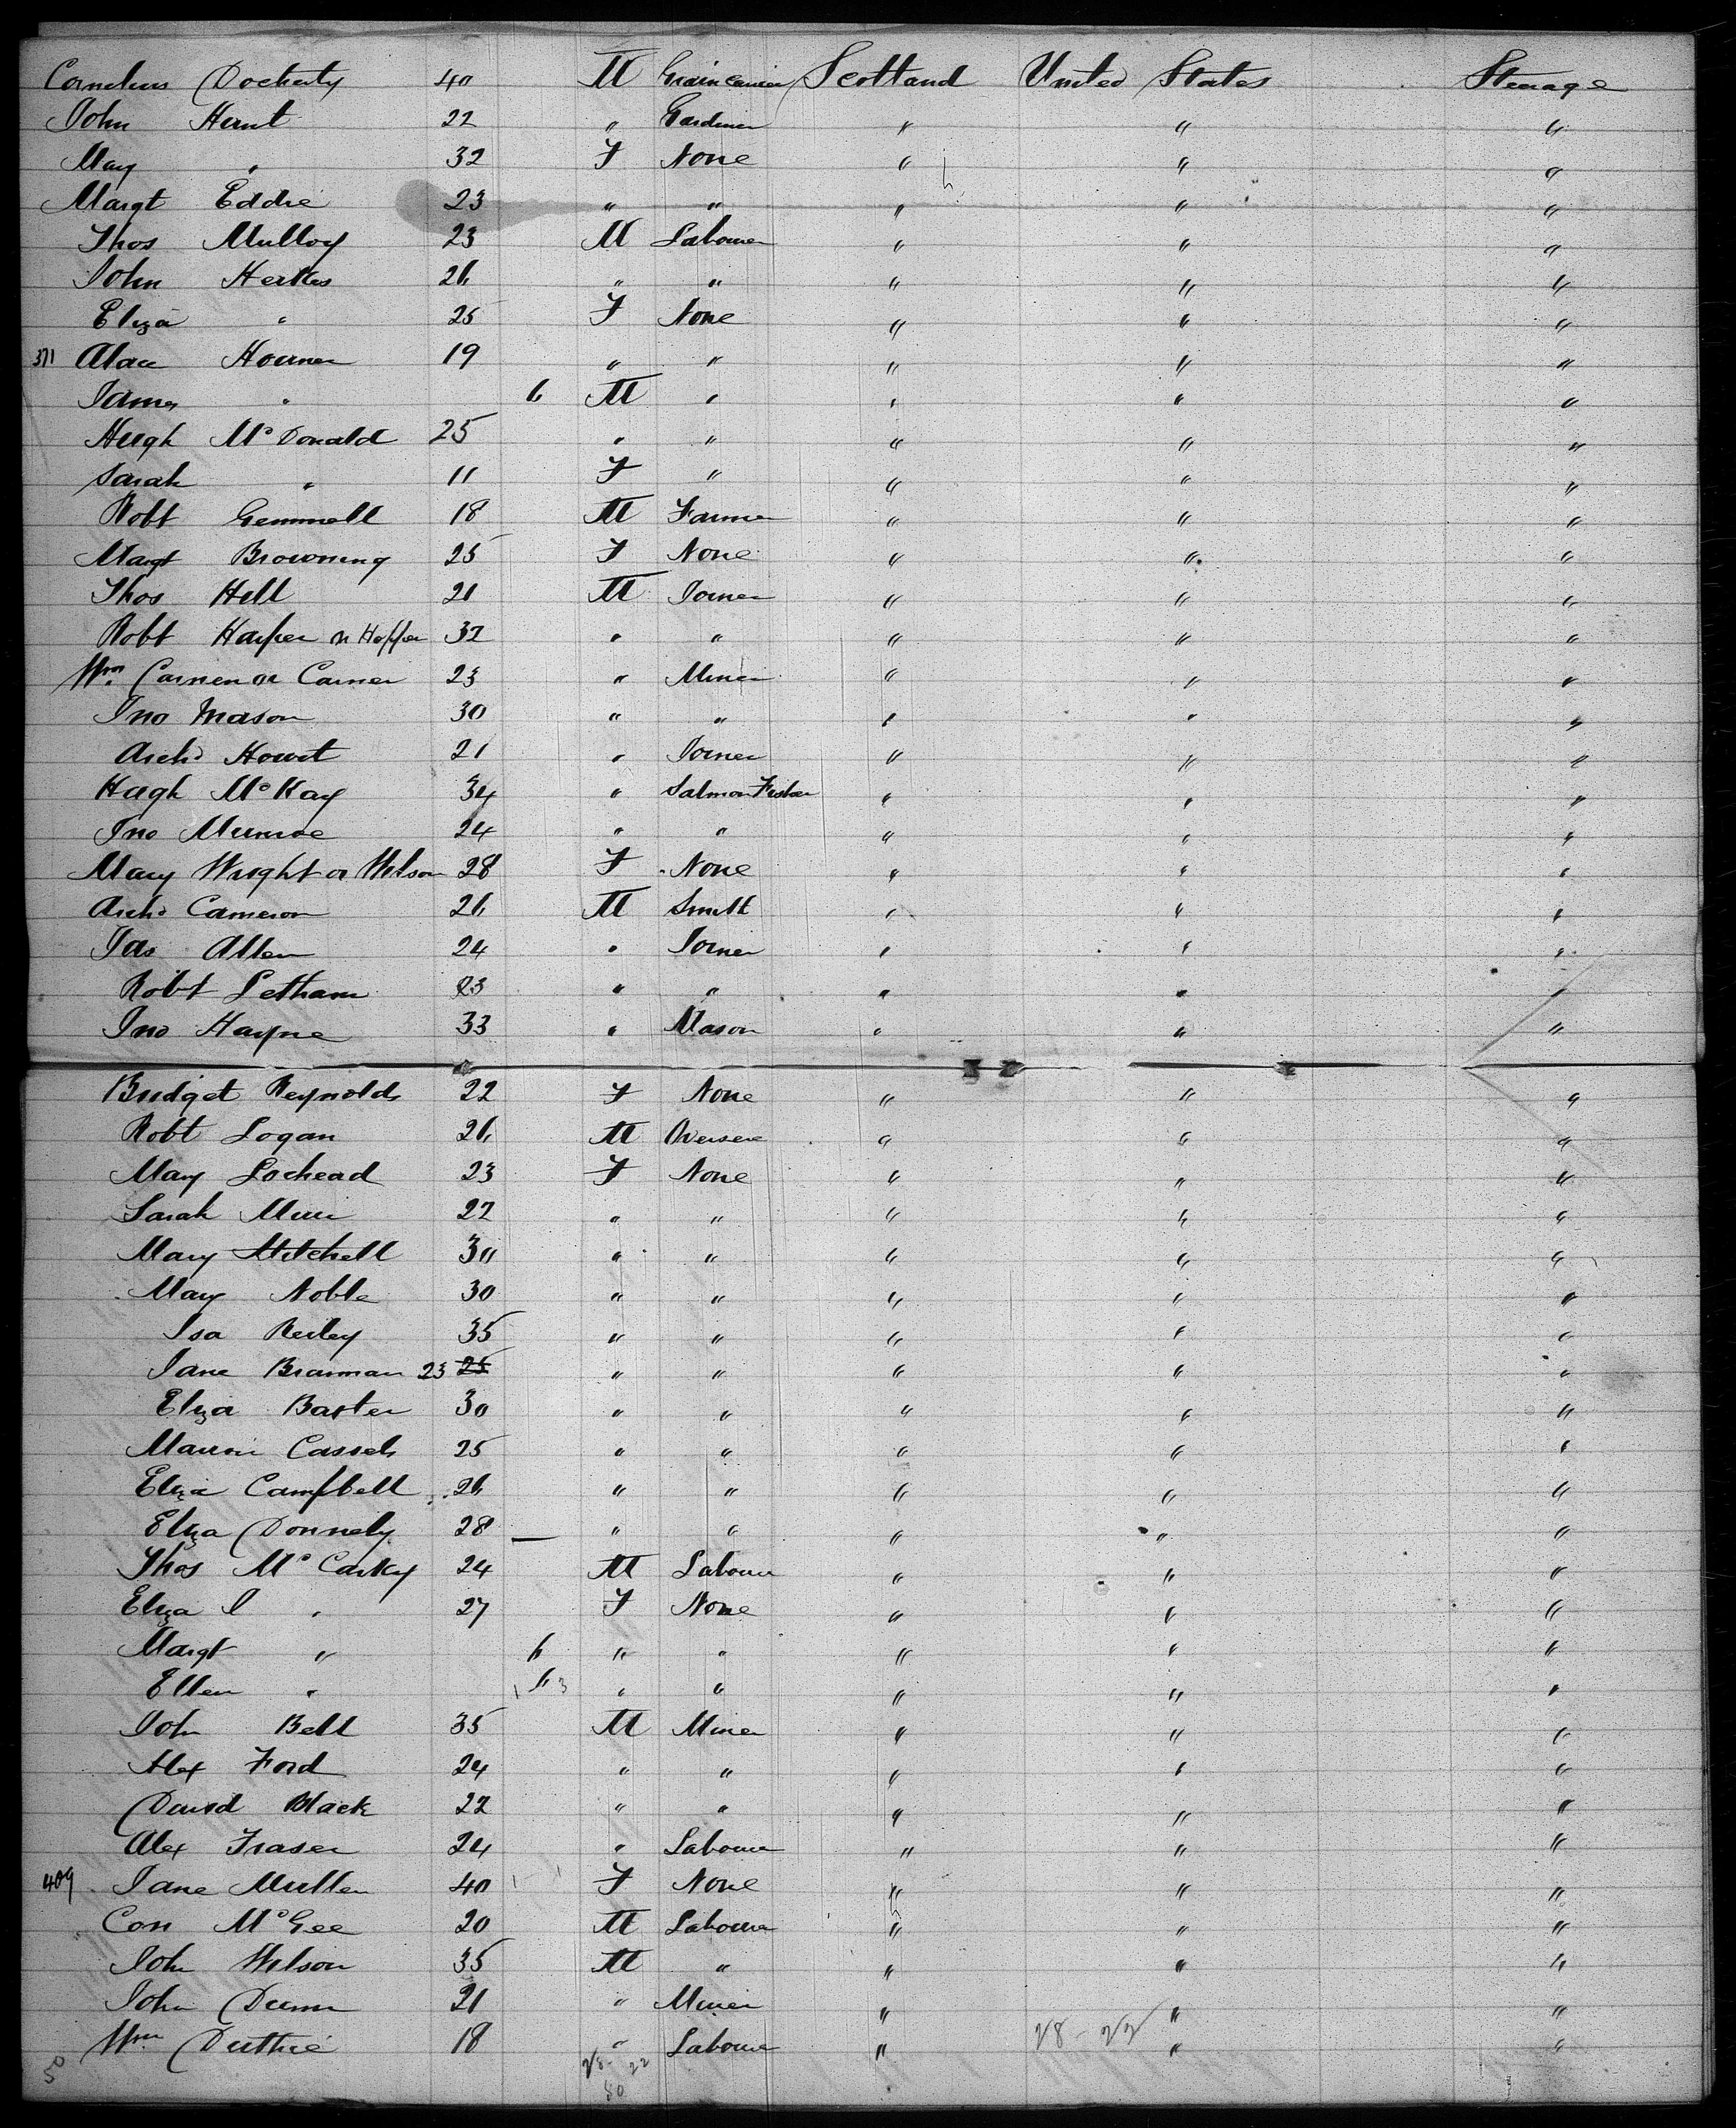 Cornelius Docherty 40 M Grain Carrier Scotland United States Steerage
John Hunt 22 " Gardiner " " "
May " 32 F None " " "
Margt Eddie 23 " " " " "
Thos Mulloy 23 M Labourer " " "
John Herkes 26 " " " " "
Eliza " 25 F None " " "
371 19 " " " " "
James " 6 M " " " "
Hugh McDonald 25 " " " " "
Sarah " 11 F " " " "
Robt Gemmell 18 M Farmer " " "
Margt Browning 25 F None " " "
Thos Hill 21 M Joiner " " "
Robt Harper or Hopper 32 " " " " "
Wm Carnen or Carner 23 " Miner " " "
Jno Mason 30 " " " " "
Archd Howit 21 " Joiner " " "
Hugh McKay 34 " Salmon Fisher " " "
Jno Munroe 24 " " " " "
Mary Wright or Wilson 28 F None " " "
Archd Cameron 26 M Smith " " "
Jas Allen 24 " Joiner " " "
Robt Letham 23 " " " " "
Jno Hayne 33 " Mason " " "
Bridget Reynolds 22 F None " " "
Robt Logan 26 M Overseer " " "
Mary Lochead 23 F None " " "
Sarah 22 " " " " "
Mary Mitchell 30 " " " " "
Mary Noble 30 " " " " "
Isa Reiley 35 " " " " "
Jane Brannan 23 25 " " " " "
Eliza Baxter 30 " " " " "
Cassels 25 " " " " "
Eliza Campbell 26 " " " " "
Eliza Donnely 28 " " " " "
Thos McCarky 24 M Labourer " " "
Eliza J " 27 F None " " "
Margt " 6 " " " " "
Ellen " " " " " "
John Bell 35 M Miner " " "
Alex Ford 24 " " " " "
David Black 22 " " " " "
Alex Fraser 24 " Labourer " " "
409 Jane Mullen 40 F None " " "
Con McGee 20 M Labourer " " "
John Wilson 35 M " " " "
John Dunn 21 " Miner " " "
Wm Duthie 18 " Labourer " " "
28 - 22
28 - 22
50